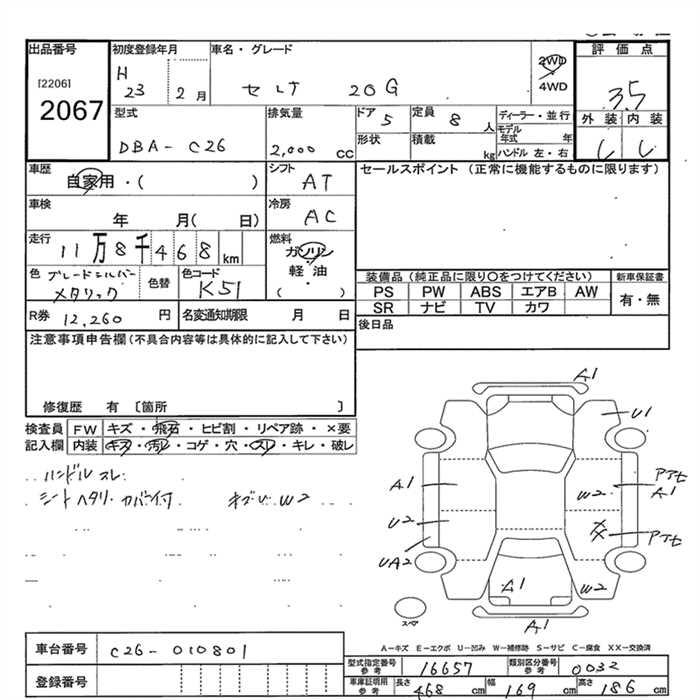 出品番号
[2206]
2067
初度登録年月
H 23 2 月
車名・グレード
セレナ 20G
2WD
4WD
評価点
3.5
外装 内装
型式
DBA-C26
排気量
2,000 cc
ドア 5
定員 8 人
形状
積載 kg
ディーラー・並行
モデル年式 年
ハンドル 左・右
車歴
自家用・( )
シフト
AT
セールスポイント (正常に機能するものに限ります)
車検
年 月( 日)
冷房
AC
走行
11万8千468 km
燃料
ガソリン
軽・油
( ・ )
色 ブレードシルバーメタリック
色替
色コード
K51
装備品(純正品に限り○をつけてください)
新車保証書
PS PW ABS エアB AW
SR ナビ TV カワ
有・無
R券 12,260 円
名変通知期限 月 日
後日品
注意事項申告欄(不具合内容等は具体的に記入して下さい)
修復歴 有 〔箇所 〕
検査員 FW キズ・飛石・ヒビ割・リペア跡・×要
記入欄 内装 キズ・汚レ・コゲ・穴・スレ・キレ・破レ
ハンドルスレ
シートヘタリ・カバー付 キズU W2
A1
U1
A1
W2
アテセ
A1
U2
XX
アテセ
UA2
A1
W2
スペア
A1
A-キズ E-エクボ U-凹み W-補修跡 S-サビ C-腐食 XX-交換済
車台番号 C26-010801
登録番号
型式指定番号 参考 16657
類別区分番号 参考 0032
車庫証明用 参考 長さ 468 cm 幅 169 cm 高さ 186 cm